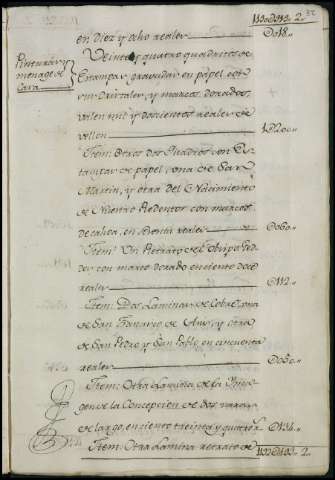 en diez y ocho reales D018,,
Pinturas, y menage de Casa
Veinte y quatro quadritos de
Estampas gravadas en papel con
sus cristales, y marcos dorados,
valen mil y doscientos reales de
vellon 1D200,,
Item: Otros dos Quadros con Es-
tampas de papel, una de San
Martin, y otra del Nacimiento
de Nuestro Redentor con marcos
de, en sesenta reales D060,,
Item: Un Retrato del Obispo
con marco dorado en ciento doce
reales D112
Item: Dos Laminas de Cobre, una
de San Franco de Asis, y otra
de San Pedro, y San Pablo en cincuenta
reales D050,,
Item: Otra Lamina de la Yma-
gen de la Concepcion de dos varas
de largo, en ciento treinta y quatro r. D134,,
Item: Otra Lamina retrato de